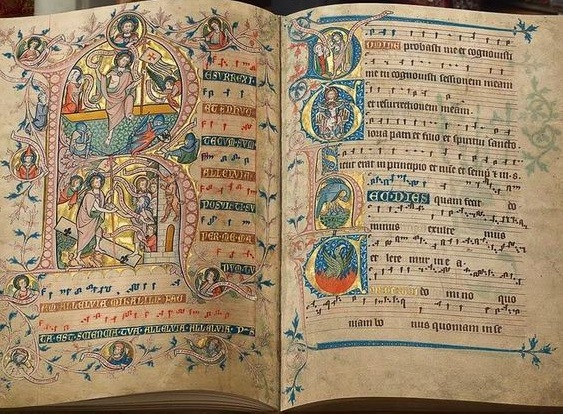 ESURREXI
ET ADHUC
TECUM SUM
ALLELVIA
POSVISTI SU
PER ME MA
NVM TV
AM ALLELVIA MIRABILIS FAC
TA EST SCIENCIA TVA ALLELVIA ALLELVIA P
DOMINE probasti me et cognouisti
me tu cognouisti sessionem meam
et resurrectionem meam.
Gloria patri et filio et spiritui sancto
Sicut erat in principio et nunc et semper
HEC DIES quam fecit do
minus exulte mus
et lete mur in e a.
do mi no quo
niam bo nus quoniam in se